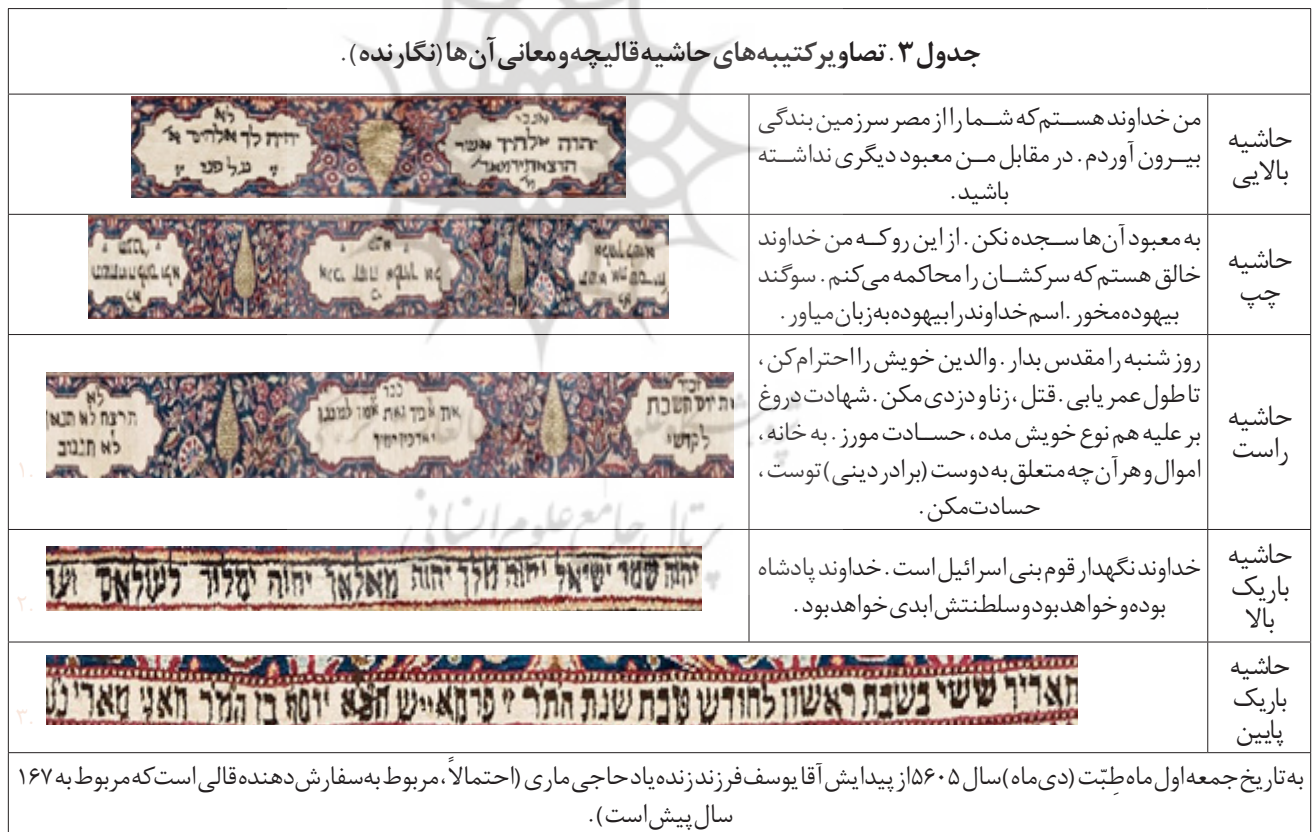 جدول ۳. تصاویر کتیبه‌های حاشیه قالیچه و معانی آن‌ها (نگارنده).
حاشیه
بالایی
من خداوند هستم که شما را از مصر سرزمین بندگی
بیرون آوردم. در مقابل من معبود دیگری نداشته
باشید.
אנכי
יהוה אלהיך אשר
לא
יהיה לך
על פני
حاشیه
چپ
به معبود آن‌ها سجده نکن. از این رو که من خداوند
خالق هستم که سرکشان را محاکمه می‌کنم. سوگند
بیهوده مخور. اسم خداوند را بیهوده به زبان میاور.
حاشیه
راست
روز شنبه را مقدس بدار. والدین خویش را احترام کن،
تا طول عمر یابی. قتل، زنا و دزدی مکن. شهادت دروغ
بر علیه هم نوع خویش مده، حسادت مورز. به خانه،
اموال و هر آن چه متعلق به دوست (برادر دینی) توست،
حسادت مکن.
את יום השבת
לקדשו
לא
תרצח לא
לא תגנוב
۱.
حاشیه
باریک
بالا
خداوند نگهدار قوم بنی اسرائیل است. خداوند پادشاه
بوده و خواهد بود و سلطنتش ابدی خواهد بود.
יהוה שמר ישיאל יהוה מלך יהוה מאלאך יהוה ימלוך לעולאם
۲.
حاشیه
باریک
پایین
ששי בשבת ראשון לחודש טבת שנת התר יוסף בן
۳.
به تاریخ جمعه اول ماه طِبّت (دی ماه) سال ۵۶۰۵ از پیدایش آقا یوسف فرزند زنده یاد حاجی ماری (احتمالاً، مربوط به سفارش دهنده قالی است که مربوط به ۱۶۷
سال پیش است).
پرتال جامع علوم انسانی